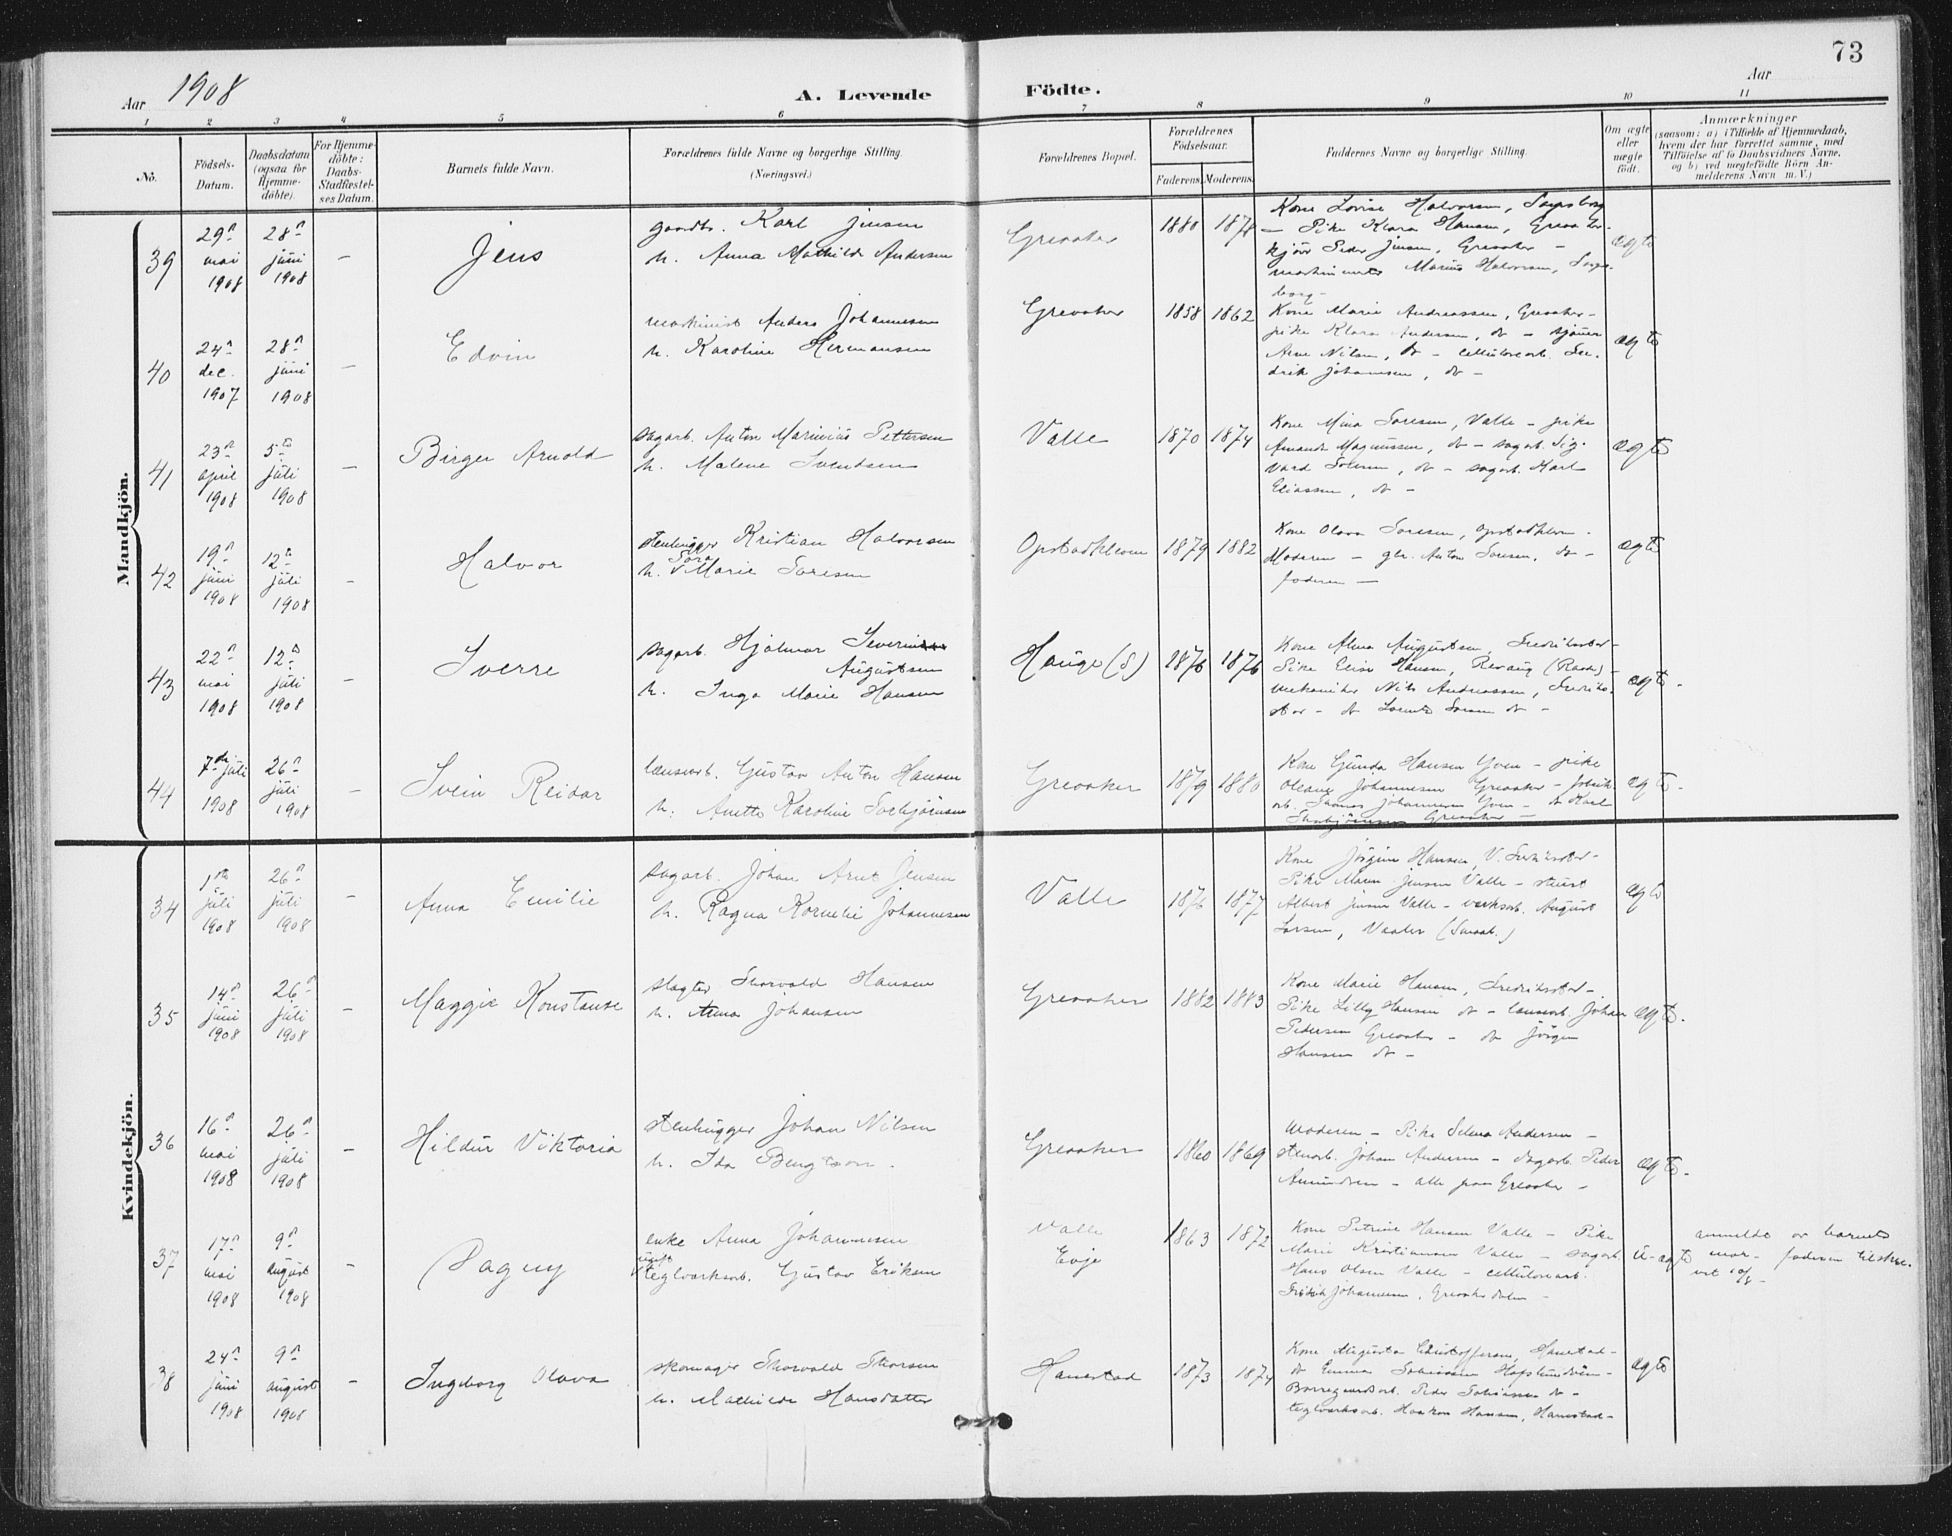 73
Aar 1908
A. Levende Födte.
Aar
1 2 3 4 5 6 7 8 9 10 11
No.
Födsels-Datum.
Daabsdatum (ogsaa for Hjemme-döbte).
For Hjemme-döbte: Daabs-Stadfæstel-ses Datum.
Barnets fulde Navn.
Forældrenes fulde Navne og borgerlige Stilling.
(Næringsvei.)
Forældrenes Bopæl.
Forældrenes Födselsaar.
Faderens. Moderens.
Faddernes Navne og borgerlige Stilling.
Om ægte eller uægte födt.
Anmærkninger
(saasom: a) i Tilfælde af Hjemmedaab,
hvem der har forrettet samme, med
Tilföielse af to Daabsvidners Navne,
og b) ved uægtefödte Börn An-
melderens Navn m. V.)
Mandkjön.
39 29 mai 1908 28 juni 1908 – Jens
gaardbr. Karl Jensen
h. Anna Mathilde Andersen
Greaaker 1880 1878
Kone Lovise Halvorsen, Sarpsborg
– Pike Klara Hansen, Greaaker
Peder Jensen, Greaaker –
Marius Halvorsen, Sarps-
borg –
ægte
40 24 dec. 1907 28 juni 1908 – Edvin
maskinist Anders Johannesen
h. Karoline Hermansen
Greaaker 1858 1862
Kone Marie Andreassen, Greaaker –
pike Klara Andersen, do –
Arne Nilsen, do – cellulosearb. Fre-
drik Johannesen, do –
ægte
41 23 april 1908 5 juli 1908 – Birger Arnold
sagarb. Anton Marinius Pettersen
h. Malene Svendsen
Valle 1870 1874
Kone Mina Sorensen, Valle – pike
Amanda Magnussen, do – sagarb. Sig-
vard Solem, do – sagarb. Karl
Eliassen, do –
ægte
42 19 juni 1908 12 juli 1908 – Halvor
stenhugger Kristian Halvorsen
h. Tora Marie Soresen
Opstadkleven 1879 1882
Kone Olava Soresen, Opstadkleven –
Moderen – gbr. Anton Soresen, do –
faderen –
ægte
43 22 mai 1908 12 juli 1908 – Sverre
sagarb. Hjalmar Severin
Augustsen
h. Inga Marie Hansen
Hauge (S) 1876 1876
Kone Alma Augustsen, Fredrikstad –
Pike Elise Hansen, Revaug (Raade) –
mekaniker Nils Andreassen, Fredrik-
stad – do Lorentz Soresen do –
ægte –
44 7de juli 1908 26 juli 1908 – Svein Reidar
lænsearb. Gustav Anton Hansen
h. Anette Karoline Torbjörnsen
Greaaker 1879 1880
Kone Gunda Hansen Yven – pike
Oleane Johannesen Greaaker – fabrik-
arb. Thomas Johannesen Yven – do Karl
Thorbjörnsen Greaaker –
ægte –
Kvindekjön.
34 1 juli 1908 26 juli 1908 – Anna Emilie
sagarb. Johan Arnt Jensen
h. Ragna Kornelie Johannesen
Valle 1876 1877
Kone Jörgine Hansen, V. Fredrikstad –
Pike Maren Jensen Valle –
Albert Jensen Valle – verksarb. August
Larsen, Vaaler (Smaal.)
ægte
35 14 juni 1908 26 juli 1908 – Maggie Konstanse
slagter Thorvald Hansen
h. Anna Johansen
Greaaker 1882 1883
Kone Marie Hansen, Fredrikstad –
Pike Lilly Hansen do – lænsearb. Johan
Pedersen Greaaker – do Jörgen
Hansen do –
ægte –
36 16 mai 1908 26 juli 1908 – Hildur Viktoria
stenhugger Johan Nilsen
h. Ida Bengtson.
Greaaker 1860 1869
Moderen – Pike Selma Andersen –
stenarb. Johan Andersen – sagarb. Peder
Amundsen – alle paa Greaaker –
ægte –
37 17 mai 1908 9 august 1908 – Dagny
enke Anna Johannesen
ugift teglverksarb. Gustav Eriksen
Valle Evje 1863 1872
Kone Petrine Hansen Valle – Pike
Marie Kristiansen Valle – sagarb.
Hans Olsen Valle – cellulosearb.
Fridrik Johannesen, Greaakerdalen –
u-ægte
anmeldt av barnets
mor – faderen tilskre-
vet
38 24 juni 1908 9 august 1908 – Ingeborg Olava
skomager Thorvald Thorsen
h. Mathilde Hansdatter
Hanestad 1873 1874
Kone Augusta Christoffersen, Hanestad –
do Emma Tobiassen Hafslundsöen –
Borregaardsarb. Peder Tobiassen do –
teglverksarb. Haakon Hansen, Hanestad –
ægte